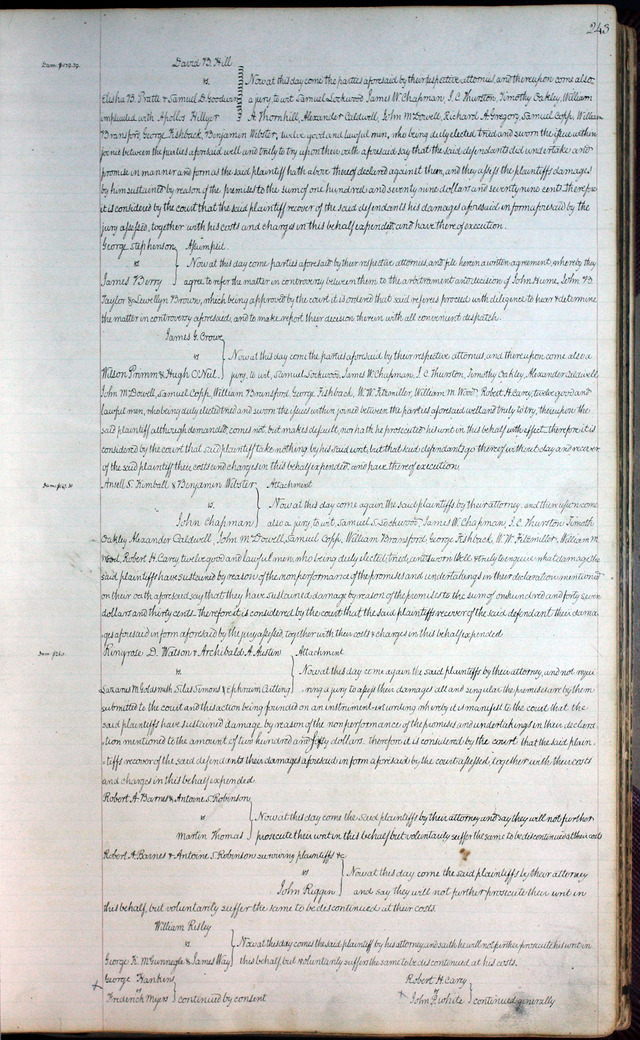 243
Dam. $179.79.
David B. Hill
vs.
Now at this day come the parties aforesaid by their respective attornies, and thereupon come also
Elisha B. Pratte & Samuel D. Goodwin
a jury, to wit Samuel Lockwood James W. Chapman, I. C. Thurston, Timothy Oakley, William
impleaded with Apollos Hillyer
A Thornhill Alexander Caldwell, John McDowell, Richard A. Gregory, Samuel Copp, William
Bransford, George Fishback, Benjamin Webster, twelve good and lawful men, who being duly elected tried and sworn the issue within
joined between the parties aforesaid well and truly to try upon their oath aforesaid say that the said defendants did undertake and
promise in manner and form as the said plaintiff hath above thereof declared against them, and they assess the plaintiffs damages
by him sustained by reason of the premises to the sum of one hundred and seventy nine dollars and seventy nine cents. Therefore
it is considered by the court that the said plaintiff recover of the said defendants his damages aforesaid in form aforesaid by the
jury assessed, together with his costs and charges in this behalf expended, and have thereof execution.
George Stephenson Assumpsit.
vs Now at this day come parties aforesaid by their respective attornies, and file herein a written agreement, whereby they
James Berry agree to refer the matter in controversy between them to the arbitrament and decision of John Hume, John B
Taylor & Lewellyn Brown, which being approved by the court it is ordered that said referees proceed with diligence to hear & determine
the matter in controversy aforesaid, and to make report their decision therein with all convenient dispatch.
James G. Crowe
vs Now at this day come the parties aforesaid by their respective attornies, and thereupon come also a
Wilson Primm & Hugh O'Neil jury, to wit, Samuel Lockwood, James W. Chapman, I. C. Thurston, Timothy Oakley, Alexander Caldwell
John McDowell, Samuel Copp, William Bransford, George Fishback, W. W. Fitzmiller, William M. Wood, Robert H. Carey, twelve good and
lawful men, who being duly elected tried and sworn the issues within joined between the parties aforesaid well and truly to try, thereupon the
said plaintiff although demanded, comes not but makes default, nor hath he prosecuted his writ in this behalf with effect. Therefore it is
considered by the court that said plaintiff take nothing by his said writ, but that said defendants go thereof without day and recover
of the said plaintiff their costs and charges in this behalf expended, and have thereof execution.
Ansell S. Kimball & Benjamin Webster Attachment
vs Now at this day come again the said plaintiffs by their attorney, and thereupon come
John Chapman also a jury, to wit, Samuel S. Lockwood, James W. Chapman, I. C. Thurston Timoth
Oakley Alexander Caldwell, John McDowell, Samuel Copp, William Bransford, George Fishback, W. W. Fitzmiller, William M
Wood, Robert H. Carey twelve good and lawful men, who being duly elected, tried, and sworn well & truly to enquire what damage the
said plaintiffs have sustained by reason of the non performance of the promises and undertakings in their declaration mentioned
on their oath aforesaid say that they have sustained damage by reason of the premises to the sum of one hundred and forty seven
dollars and thirty cents. Therefore it is considered by the court that the said plaintiffs recover of the said defendant their dama
ges aforesaid in form aforesaid by the jury assessed, together with their costs & charges in this behalf expended.
Ringrose D. Watson & Archibald A. Austin Attachment
vs. Now at this day come again the said plaintiffs by their attorney, and not requi
M. Goldsmith Silas Simons & Ephraim Cutting ring a jury to assess their damages all and singular the premises are by them
submitted to the court and this action being founded on an instrument in writing whereby it is manifest to the court that the
said plaintiffs have sustained damage by reason of the non performance of the promises and undertakings in their declara
tion mentioned to the amount of two hundred and fifty dollars. Therefore it is considered by the court that the said plain
tiffs recover of the said defendants their damages aforesaid in form aforesaid by the court assessed, together with their costs
and charges in this behalf expended.
Robert A. Barnes & Antoine S. Robinson
vs Now at this day come the said plaintiffs by their attorney and say they will not further
Martin Thomas prosecute their writ in this behalf but voluntarily suffer the same to be discontinued at their costs
Robert A. Barnes & Antoine S. Robinson surviving plaintiffs &c
vs Now at this day come the said plaintiffs by their attorney
John Riggin and say they will not further prosecute their writ in
this behalf, but voluntarily suffer the same to be discontinued at their costs.
William Risley
vs. Now at this day comes the said plaintiff by his attorney, and saith he will not further prosecute his writ in
George K. McGunnegle & James Way this behalf, but voluntarily suffer the same to be discontinued at his costs.
George Hankins
vs
Fredrick Myers continued by consent
Robert H. Carry
vs
John continued generally